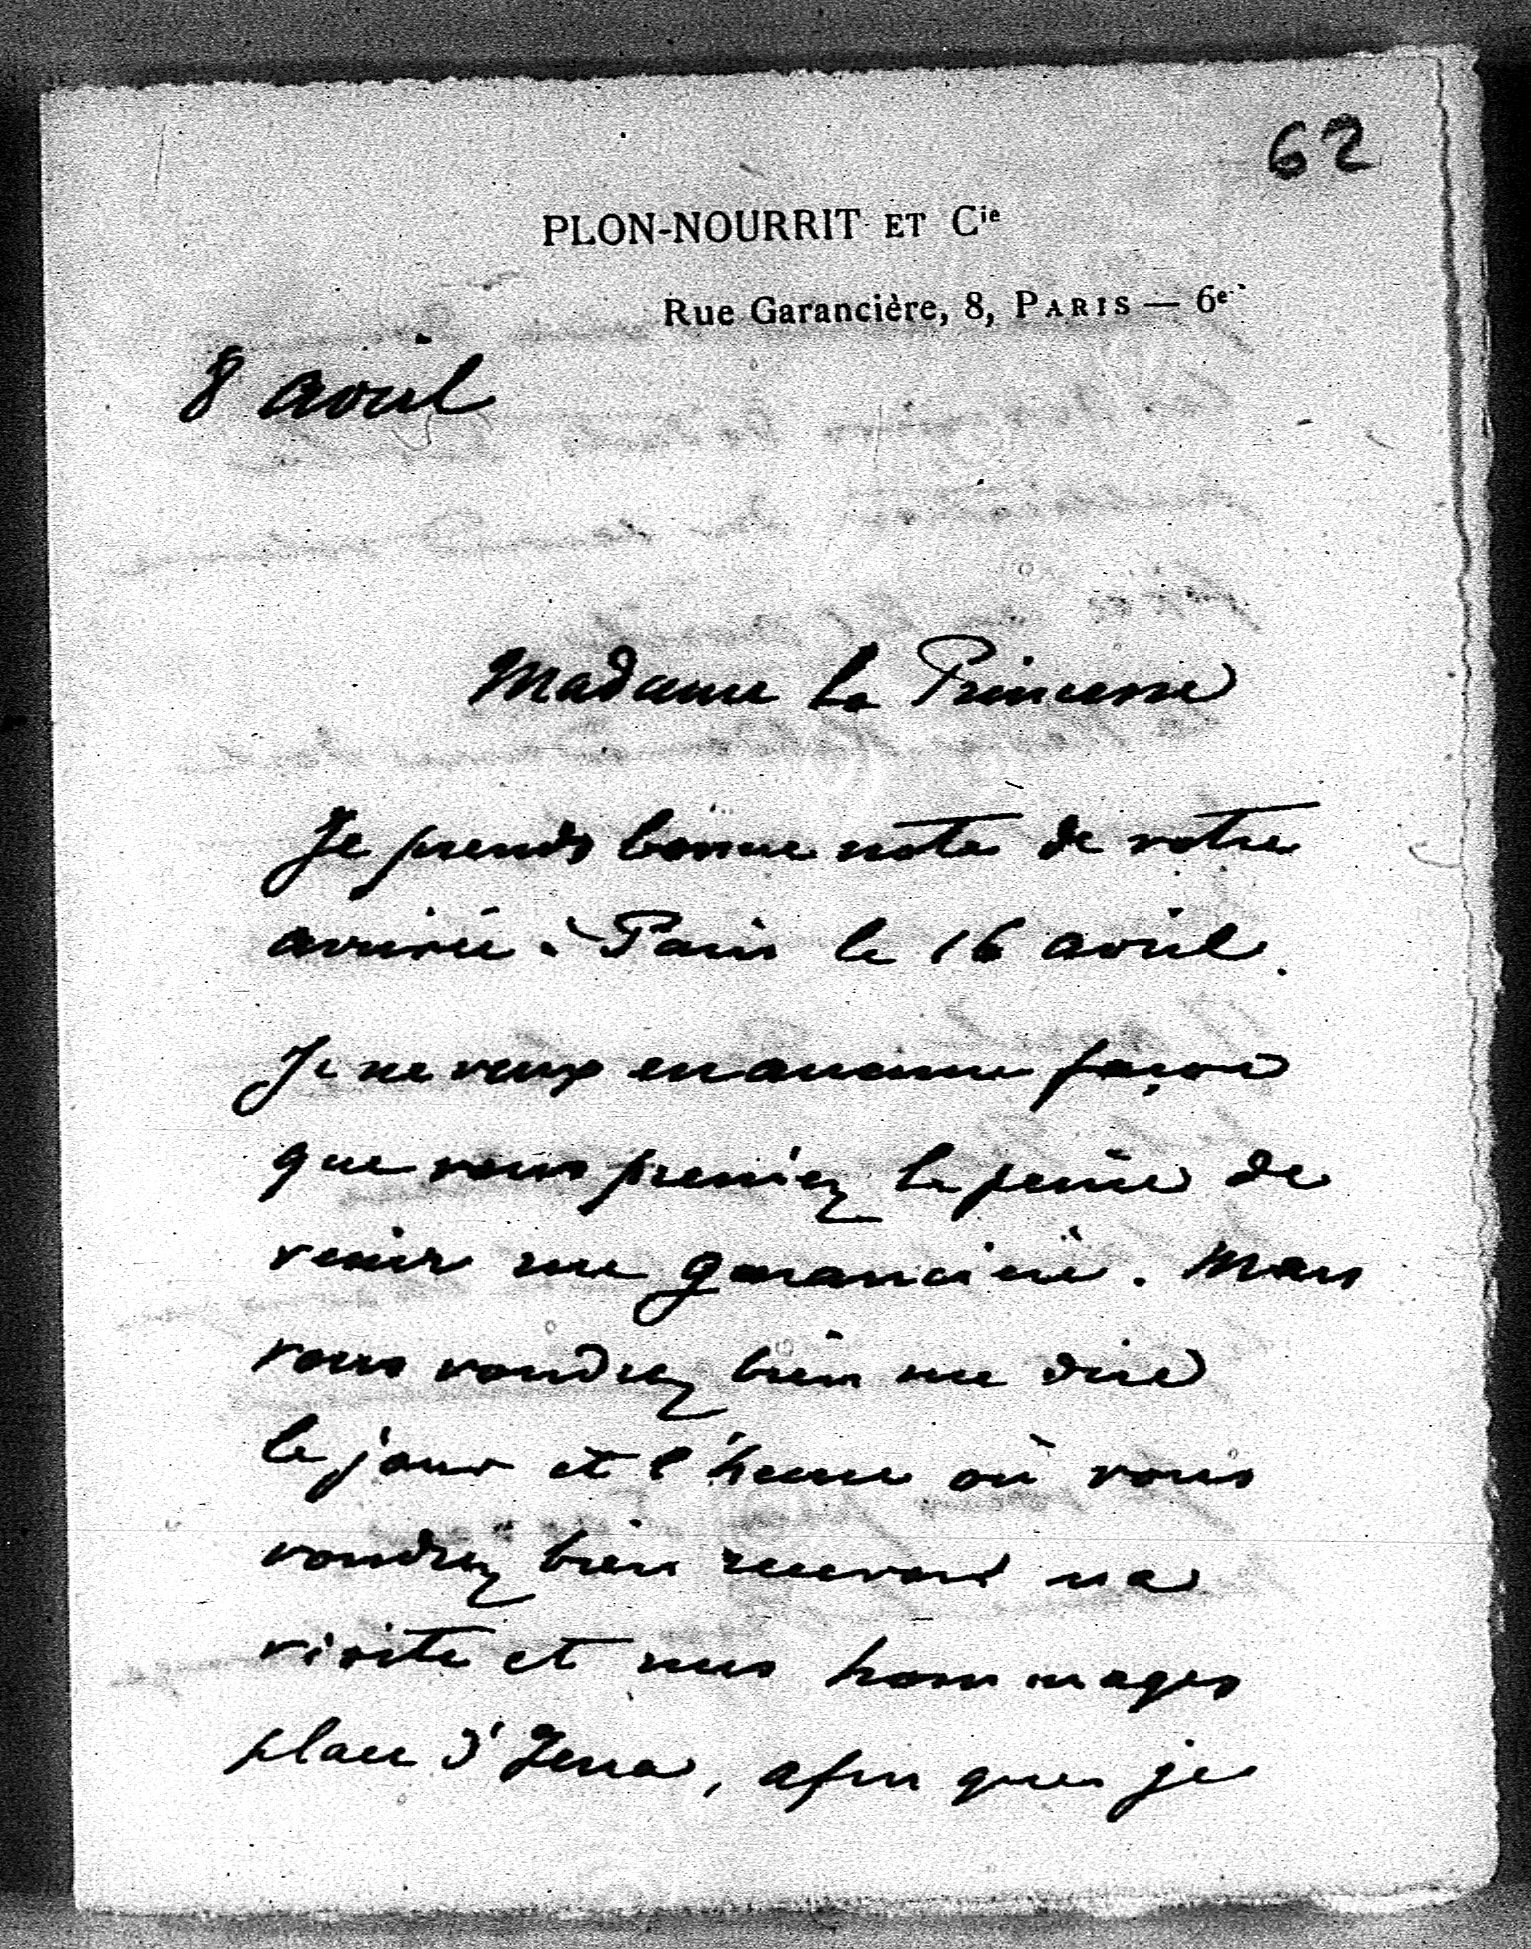 62
PLON-NOURRIT ET Cie
Rue Garancière, 8, PARIS — 6e
8 avril
Madame la Princesse
Je prends bonne note de votre
arrivée à Paris le 16 avril.
Je ne veux en aucune façon
que vous preniez la peine de
venir rue Garancière. Mais
vous voudrez bien me dire
le jour et l'heure où vous
voudrez bien recevoir ma
visite et mes hommages
place d'Iena, afin que je